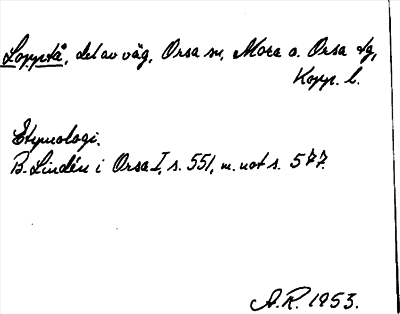 Loppstå, del av väg, Orsa sn, Mora o. Orsa tg,
Kopp. l.
Etymologi.
B. Lindén i Orsa I, s. 551, m. not s. 577.
A.R. 1953.